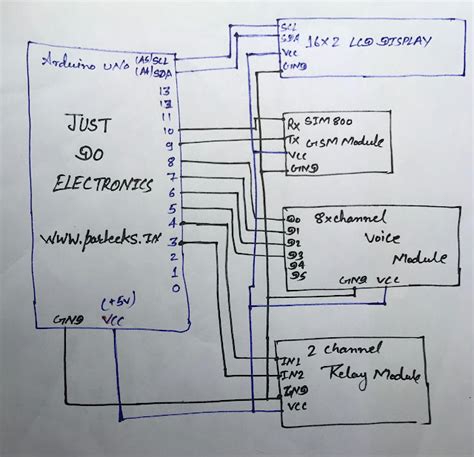 Arduino UNO
(A5)SCL
(A4)SDA
13
12
11
10
9
8
7
6
5
4
3
2
1
0
JUST
DO
ELECTRONICS
www.parteeks.IN
(+5V)
GND
VCC
SCL
SDA
VCC
GND
16x2 LCD DISPLAY
Rx
Tx
VCC
GND
SIM800
GSM Module
D0
D1
D2
D3
D4
D5
8xchannel
Voice
Module
GND VCC
IN1
IN2
GND
VCC
2 channel
Relay Module